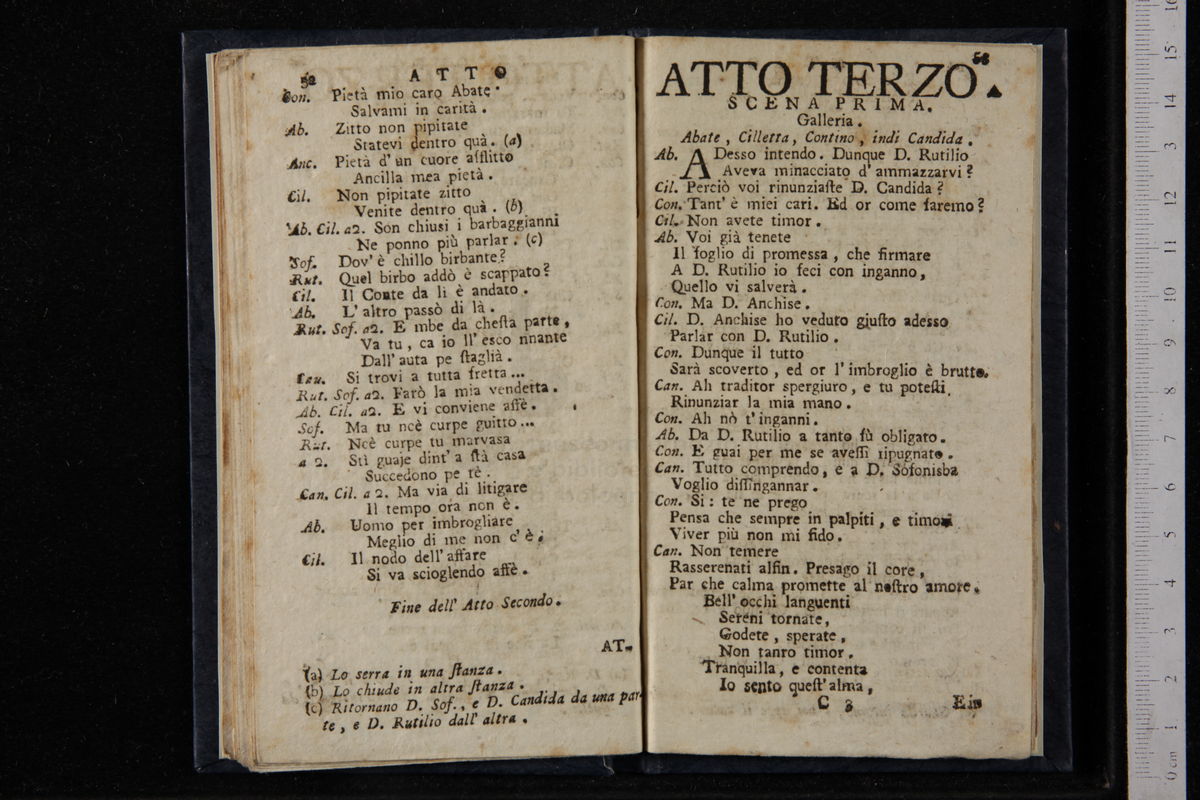 52 ATTO
Con. Pietà mio caro Abate.
Salvami in carità.
Ab. Zitto non pipitate
Statevi dentro quà. (a)
Anc. Pietà d'un cuore afflitto
Ancilla mea pietà.
Cil. Non pipitate zitto
Venite dentro quà. (b)
Ab. Cil. a2. Son chiusi i barbaggianni
Ne ponno più parlar. (c)
Sof. Dov'è chillo birbante?
Rut. Quel birbo addò è scappato?
Cil. Il Conte da li è andato.
Ab. L'altro passò di là.
Rut. Sof. a2. E mbe da chesta parte,
Va tu, ca io ll'esco nnante
Dall'auta pe staglià.
Can. Si trovi a tutta fretta...
Rut. Sof. a2. Farò la mia vendetta.
Ab. Cil. a2. E vi conviene affè.
Sof. Ma tu ncè curpe guitto...
Rut. Ncè curpe tu marvasa
a 2. Stì guaje dint'a stà casa
Succedono pe tè.
Can. Cil. a 2. Ma via di litigare
Il tempo ora non è.
Ab. Uomo per imbrogliare
Meglio di me non c'è.
Cil. Il nodo dell'affare
Si va sciogliendo affè.
Fine dell'Atto Secondo.
AT-
(a) Lo serra in una stanza.
(b) Lo chiude in altra stanza.
(c) Ritornano D. Sof., e D. Candida da una par-
te, e D. Rutilio dall'altra.
53
ATTO TERZO.
SCENA PRIMA.
Galleria.
Abate, Cilletta, Contino, indi Candida.
Ab. ADesso intendo. Dunque D. Rutilio
Aveva minacciato d'ammazzarvi?
Cil. Perciò voi rinunziaste D. Candida?
Con. Tant'è miei cari. Ed or come faremo?
Cil. Non avete timor.
Ab. Voi già tenete
Il foglio di promessa, che firmare
A D. Rutilio io feci con inganno,
Quello vi salverà.
Con. Ma D. Anchise.
Cil. D. Anchise ho veduto giusto adesso
Parlar con D. Rutilio.
Con. Dunque il tutto
Sarà scoverto, ed or l'imbroglio è brutto.
Can. Ah traditor spergiuro, e tu potesti
Rinunziar la mia mano.
Con. Ah nò t'inganni.
Ab. Da D. Rutilio a tanto fù obligato.
Con. E guai per me se avessi ripugnato.
Can. Tutto comprendo, e a D. Sofonisba
Voglio dissingannar.
Con. Si: te ne prego
Pensa che sempre in palpiti, e timori
Viver più non mi fido.
Can. Non temere
Rasserenati alfin. Presago il core,
Par che calma promette al nostro amore.
Bell'occhi languenti
Sereni tornate,
Godete, sperate,
Non tanro timor.
Tranquilla, e contenta
Io sento quest'alma,
C 3 Ein